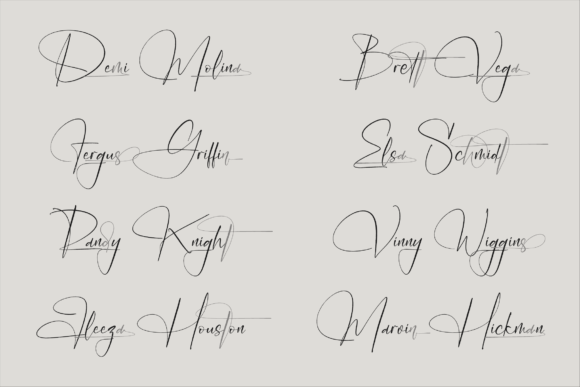 Demi Molina
Brett Vega
Fergus Griffin
Elsa Schmidt
Knight
Vinny Wiggins
Aleeza Houston
Marvin Hickman